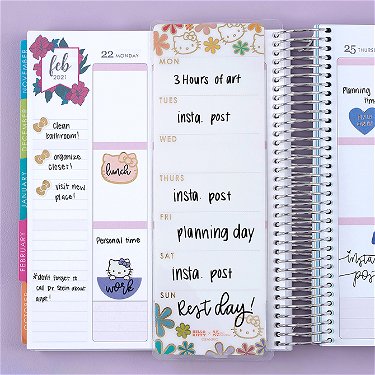 NOVEMBER
DECEMBER
JANUARY
FEBRUARY
OCTOBER
feb
2021
clean
bathroom!
organize
closet!
visit new
place!
*don't forget to
call Dr. Stein about
appt!
22 MONDAY
lunch
Personal time
work
MON
3 Hours of art
TUES
insta. post
WED
THURS
insta. post
FRI
planning day
SAT
insta. post
SUN
Rest day!
HELLO
KITTY
25 THURS
Planning
time
insta
pos